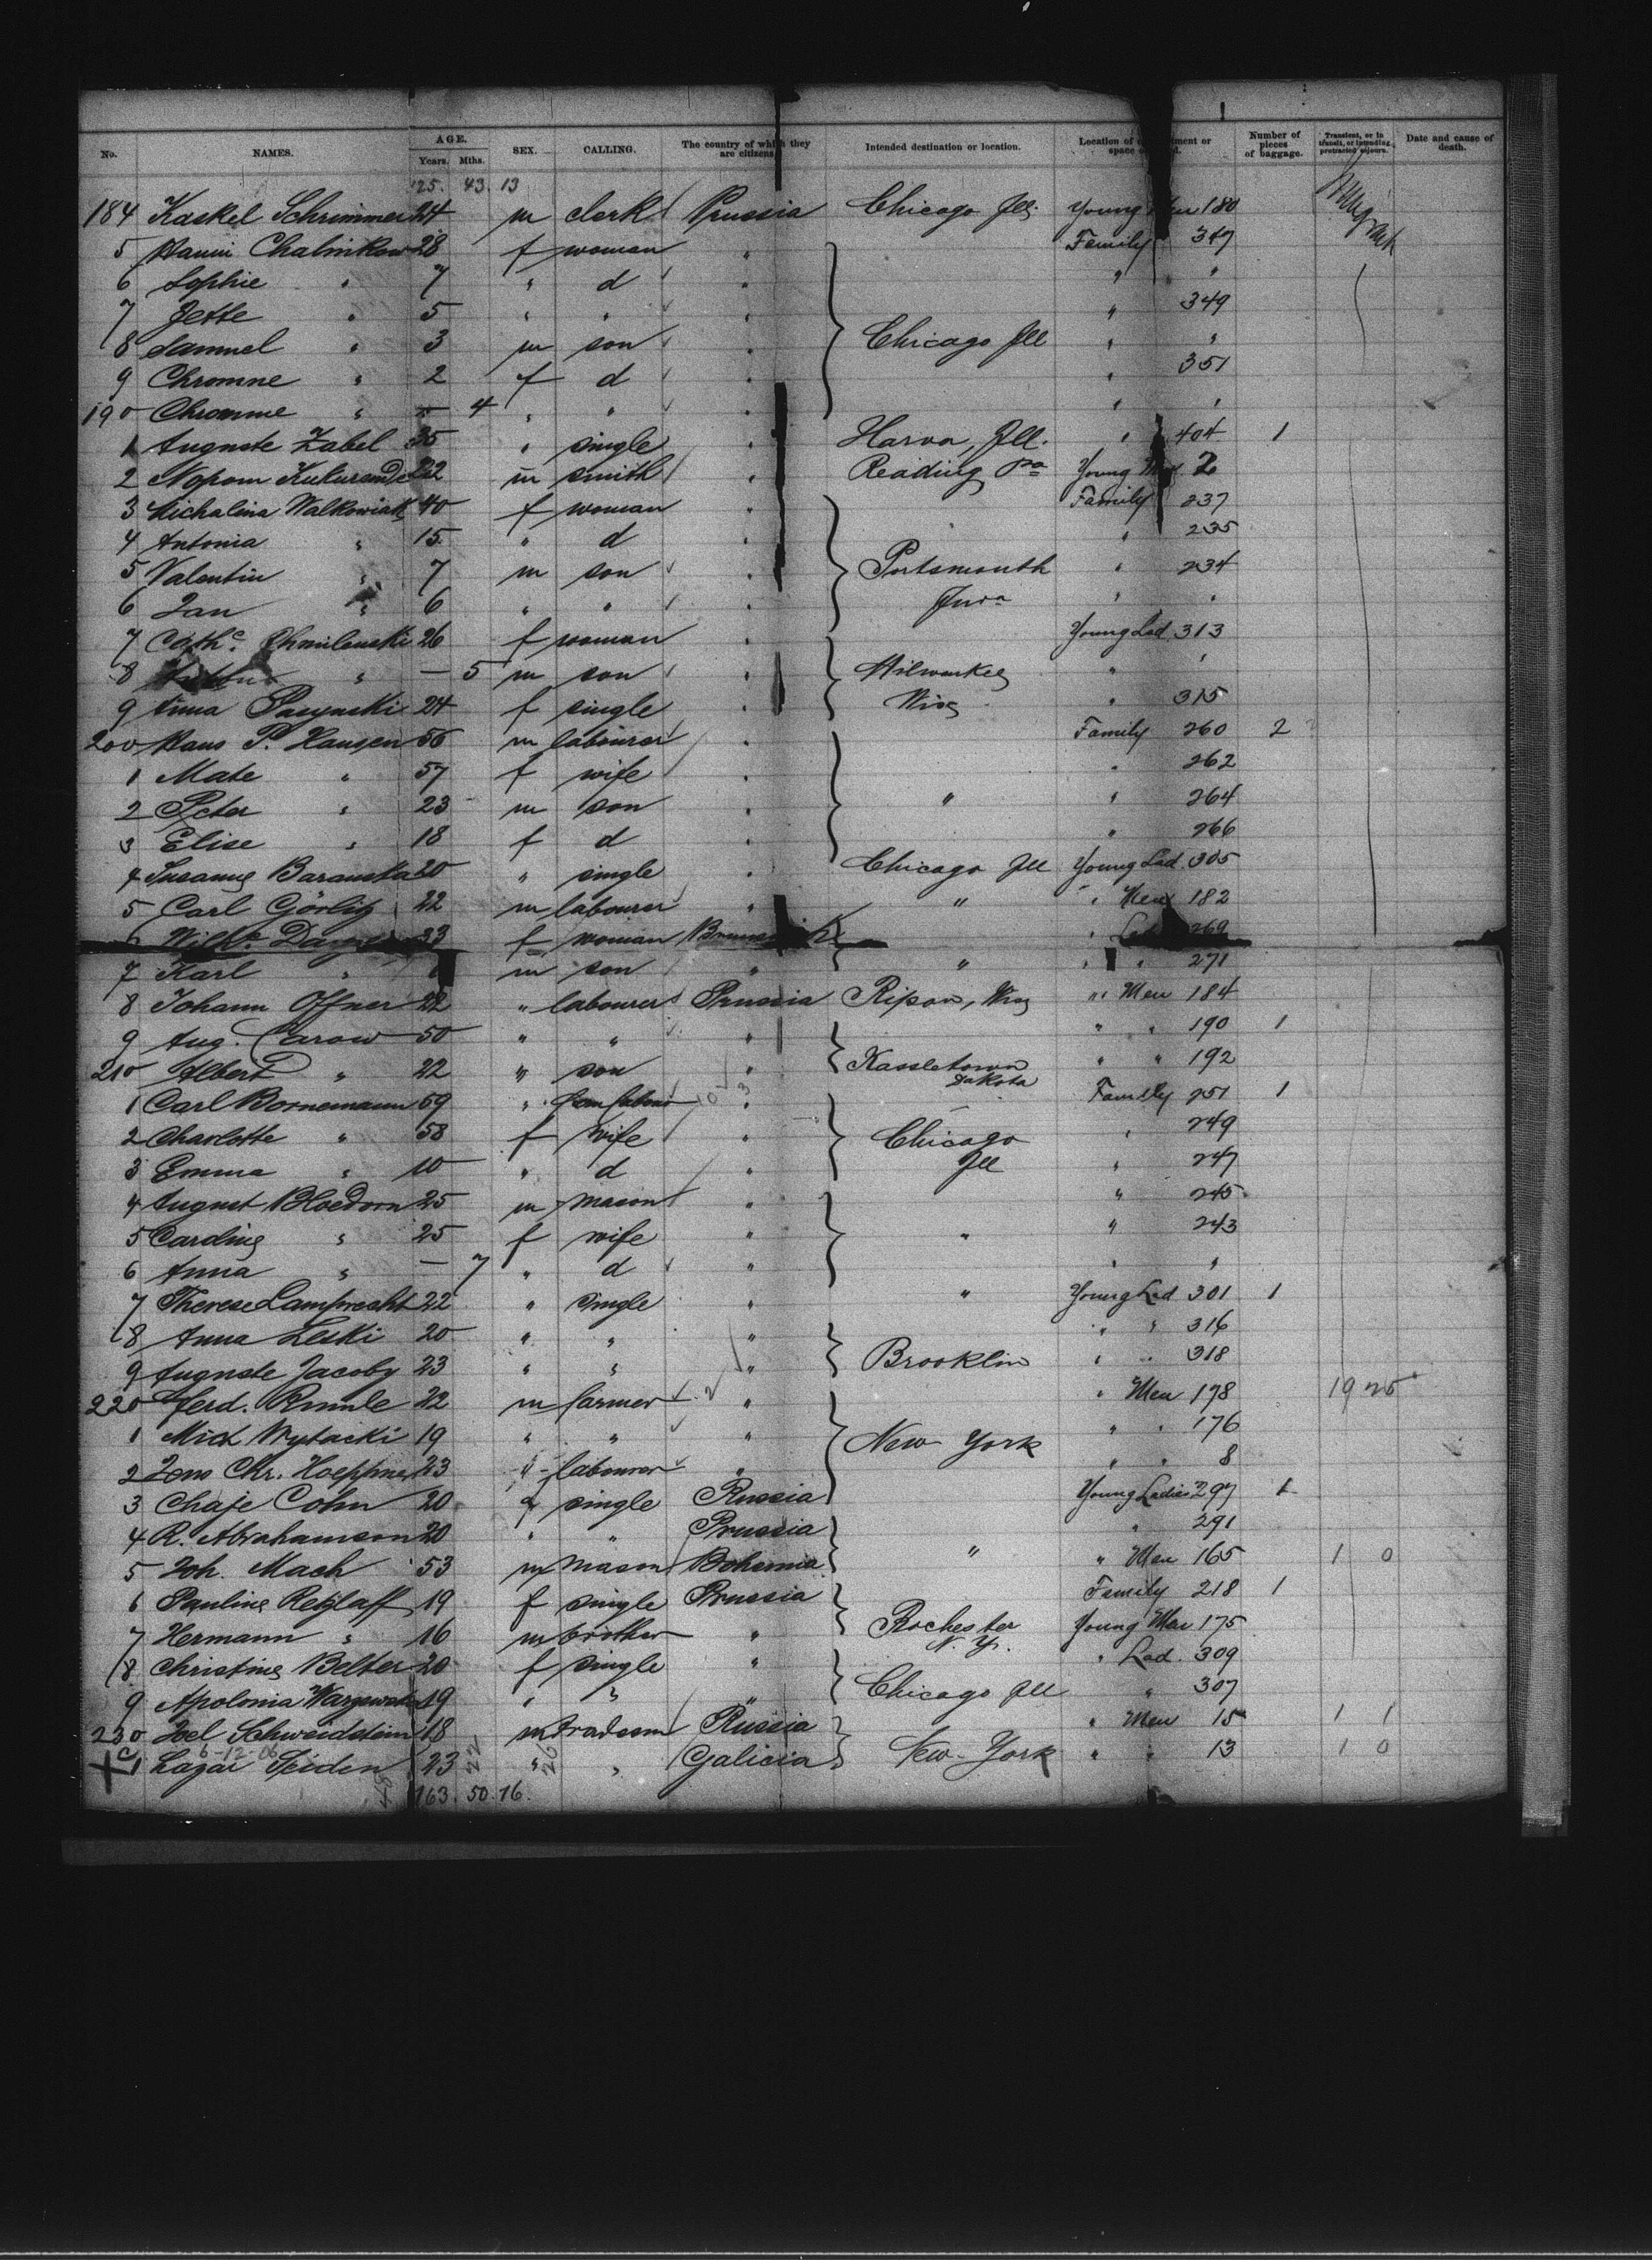 No. NAMES. AGE. Years. Mths. SEX. CALLING. The country of which they are citizens. Intended destination or location. Location of space Number of pieces of baggage. Transient, or in transit, or intending protracted sojourn. Date and cause of death.
125. 43. 13
184 Kaskel Schrimmer 24 m clerk Prussia Chicago Ill. Young Men 180
5 Chalmikow 28 f woman " Family 347
6 Sophie " 7 " d " " "
7 Jette " 5 " " " " 349
8 Samuel " 3 m son " Chicago Ill " "
9 Chromne " 2 f d " " 351
190 Chromne " — 4 " " " " "
1 Auguste Zabel 35 " single " Ill. " 404 1
2 22 m smith " Reading Pa Young 2
3 Michalina Walkowiak 40 f woman " Family 237
4 Antonia " 15 " d " " 235
5 Valentin " 7 m son " Portsmouth " 234
6 Jan " 6 " " " " "
7 Cathe. Chmilenski 26 f woman " Young Lad. 313
8 " — 5 m son " Milwaukee " "
9 Anna 24 f single " Wisc " 315
200 Hans P. Hansen 56 m labourer " Family 260 2
1 Mate " 57 f wife " " 262
2 Peter " 23 m son " " " 264
3 Elise " 18 f d " " 266
4 Susanne Baranska 20 " single " Chicago Ill Young Lad. 305
5 Carl Görlitz 22 m labourer " " " Men 182
6 Wilhe. 33 f woman " Lad 269
7 Karl " m son " " " " 271
8 Johann Offner 22 " labourer Prussia Ripon, Wisc " Men 184
9 Aug. Carow 50 " " " " " 190 1
210 Albert " 22 " son " Dakota " " 192
1 Carl Bornemann 59 " " Family 251 1
2 Charlotte " 58 f wife " Chicago " 249
3 Emma " 10 " d " Ill " 247
4 August Bloedorn 25 m mason " " 245
5 Caroline " 25 f wife " " " 243
6 Anna " — 7 " d " " "
7 Therese Lamprecht 22 " single " " Young Lad 301 1
8 Anna Leski 20 " " " " " 316
9 Auguste Jacoby 23 " " " Brooklin " " 318
220 Ferd. 22 m farmer " " Men 178 19 25
1 Mich Wytacki 19 " " " New York " " 176
2 Chr. Hoeppner 23 " labourer " " " 8
3 Chaje Cohn 20 f single Russia Young Ladies 297 1
4 R. Abrahamson 20 " " Prussia " 291
5 Joh. Mach 53 m mason Bohemia " " Men 165 1 0
6 Pauline Retzlaff 19 f single Prussia Family 218 1
7 Hermann " 16 m brother " Rochester N. Y. Young Men 175
8 Christine Belter 20 f single " " Lad. 309
9 Apolonia 19 " " " Chicago Ill " 307
230 Joel Schweidstein 18 m Russia " Men 15 1 1
6-12-06
Lazar Feiden 23 " " Galicia New-York " " 13 1 0
48 22 26
163. 50. 16.